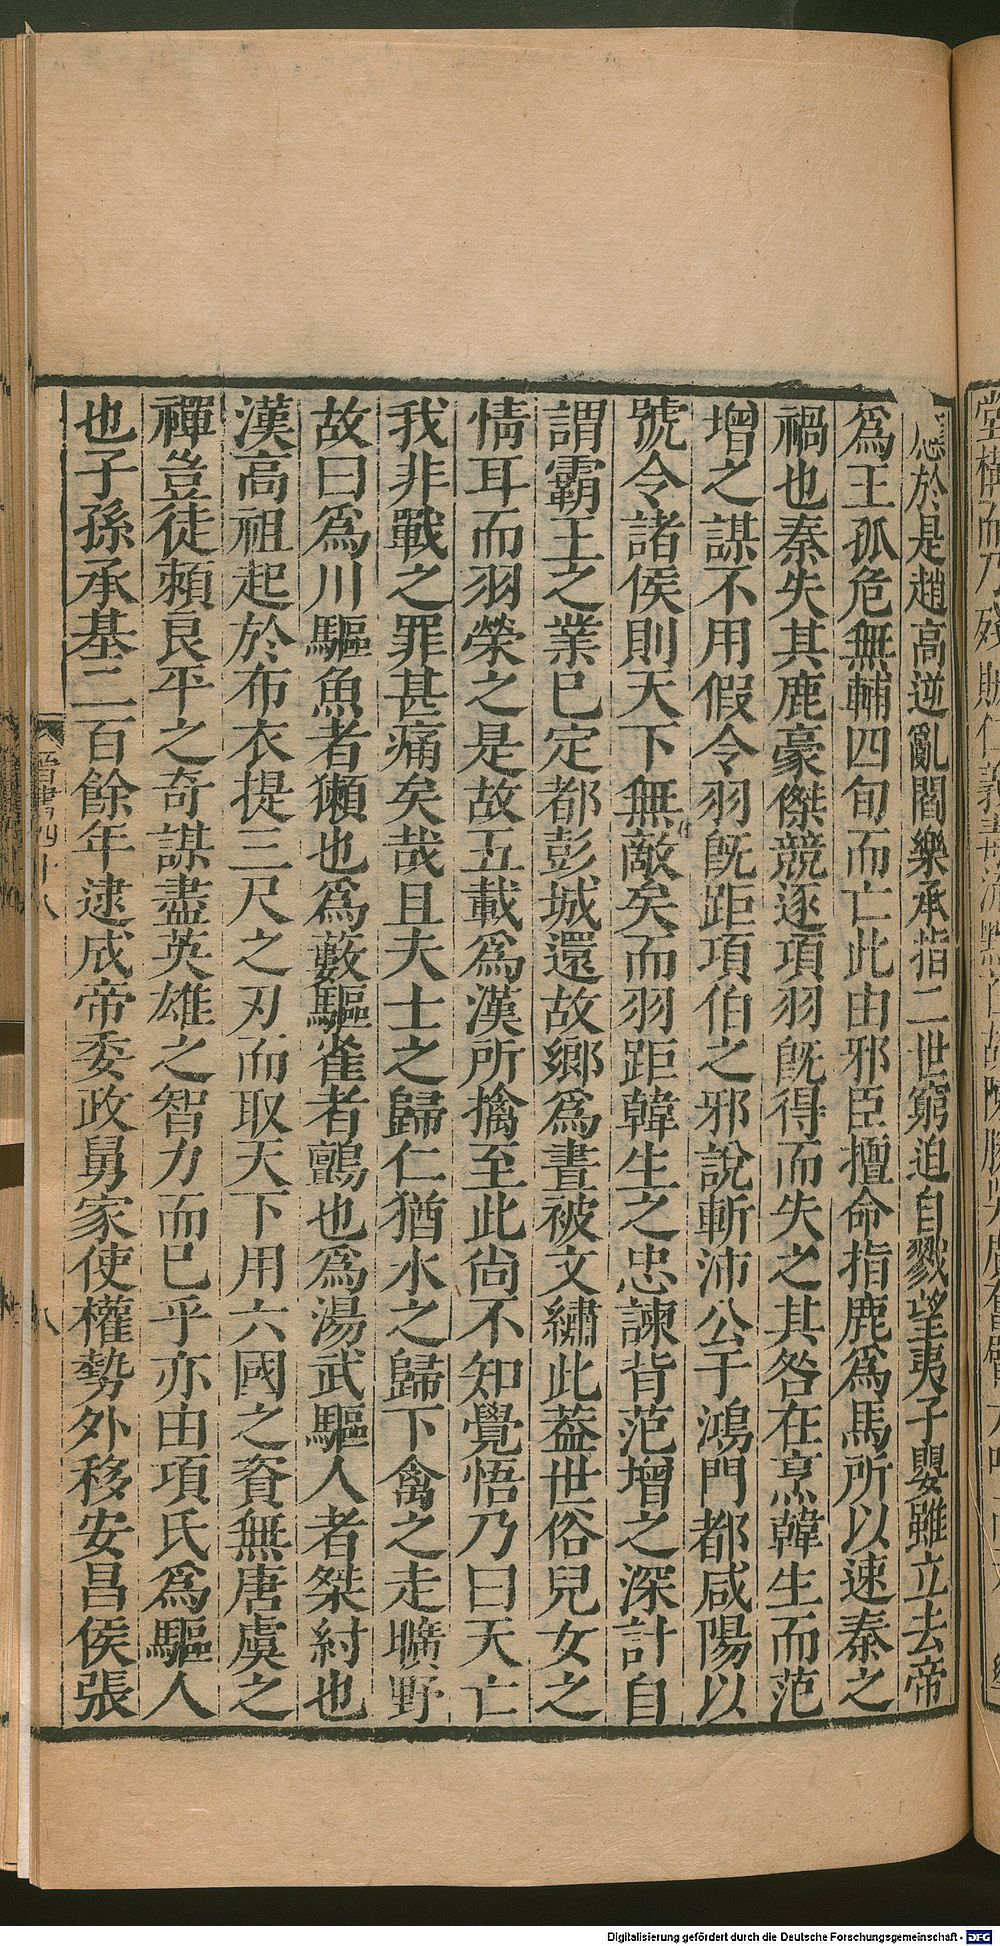 於是趙高逆亂閻樂承指二世窮迫自戮望夷子嬰雖立去帝
爲王孤危無輔四旬而亡此由邪臣擅命指鹿爲馬所以速秦之
禍也秦失其鹿豪傑競逐項羽旣得而失之其咎在烹韓生而范
增之謀不用假令羽旣距項伯之邪說斬沛公于鴻門都咸陽以
號令諸侯則天下無敵矣而羽距韓生之忠諫背范增之深計自
謂霸王之業已定都彭城還故鄉爲晝被文繡此蓋世俗兒女之
情耳而羽榮之是故五載爲漢所擒至此尙不知覺悟乃曰天亡
我非戰之罪甚痛矣哉且夫士之歸仁猶水之歸下禽之走曠野
故曰爲川驅魚者獺也爲藪驅雀者鸇也爲湯武驅人者桀紂也
漢高祖起於布衣提三尺之刃而取天下用六國之資無唐虞之
禪豈徒賴良平之奇謀盡英雄之智力而已乎亦由項氏爲驅人
也子孫承基二百餘年逮成帝委政舅家使權勢外移安昌侯張
晉書四十八
八
Digitalisierung gefördert durch die Deutsche Forschungsgemeinschaft - DFG